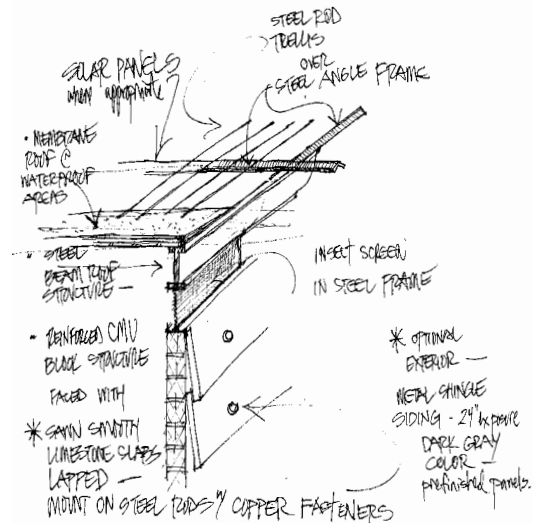 STEEL ROD
TRELLIS
OVER
STEEL ANGLE FRAME
SOLAR PANELS
where appropriate
• MEMBRANE
ROOF @
WATERPROOF
AREAS
• STEEL
BEAM ROOF
STRUCTURE —
INSECT SCREEN
IN STEEL FRAME
• REINFORCED CMU
BLOCK STRUCTURE
FACED WITH
* SAWN SMOOTH
LIMESTONE SLABS
LAPPED —
MOUNT ON STEEL RODS w/ COPPER FASTENERS
* OPTIONAL
EXTERIOR —
METAL SHINGLE
SIDING - 24" exposure
DARK GRAY
COLOR —
prefinished panels.